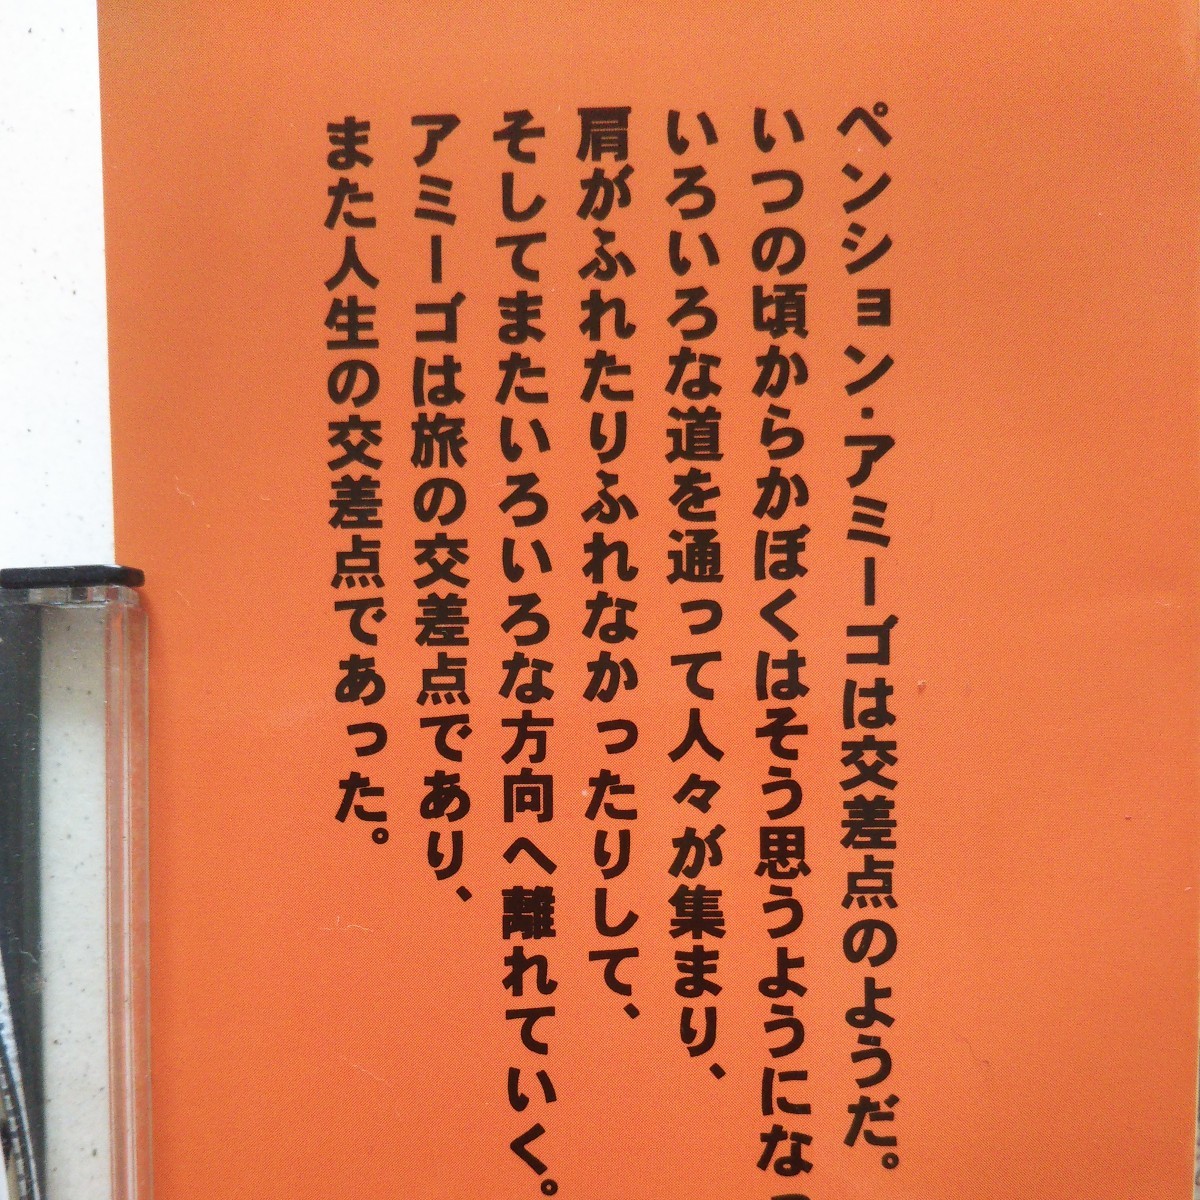 ペンション・アミーゴは交差点のようだ。
いつの頃からかぼくはそう思うようになっ
いろいろな道を通って人々が集まり、
肩がふれたりふれなかったりして、
そしてまたいろいろな方向へ離れていく。
アミーゴは旅の交差点であり、
また人生の交差点であった。